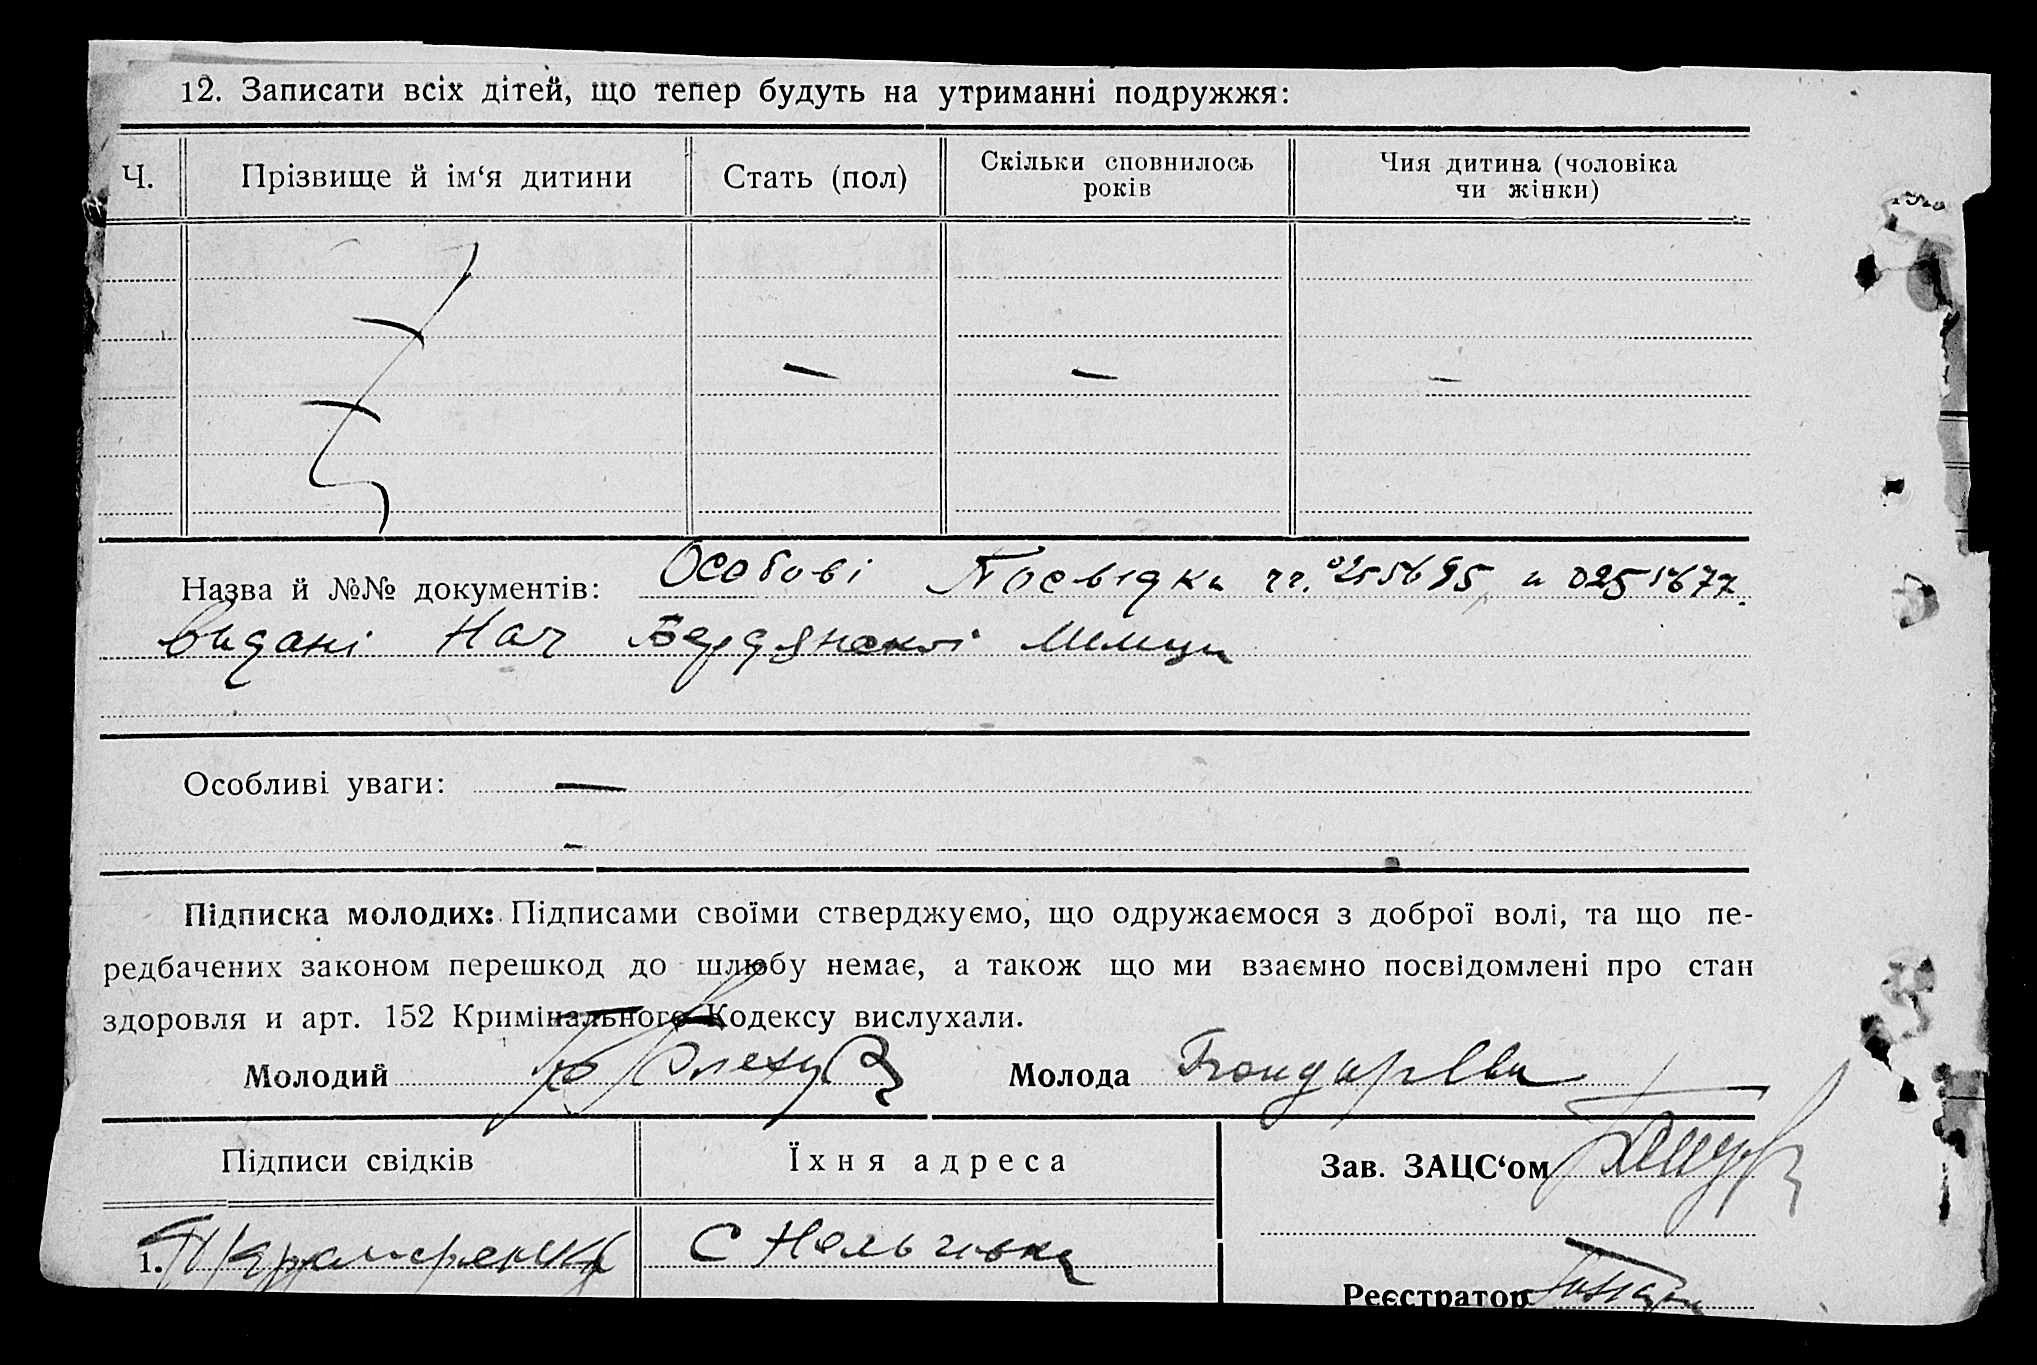 12. Записати всіх дітей, що тепер будуть на утриманні подружжя:
Ч.
Прізвище й ім‘я дитини
Стать (пол)
Скільки сповнилось
років
Чия дитина (чоловіка
чи жінки)
—
—
—
Назва й №№ документів: Особові Посвідки чч. и
видані Нач Бердянської Міліци
Особливі уваги: —
—
Підписка молодих: Підписами своїми стверджуємо, що одружаємося з доброї волі, та що пе-
редбачених законом перешкод до шлюбу немає, а також що ми взаємно посвідомлені про стан
здоровля и арт. 152 Кримінального Кодексу вислухали.
Молодий
Молода
Підписи свідків
Їхня адреса
Зав. ЗАЦС‘ом
1.
С
Реєстратор